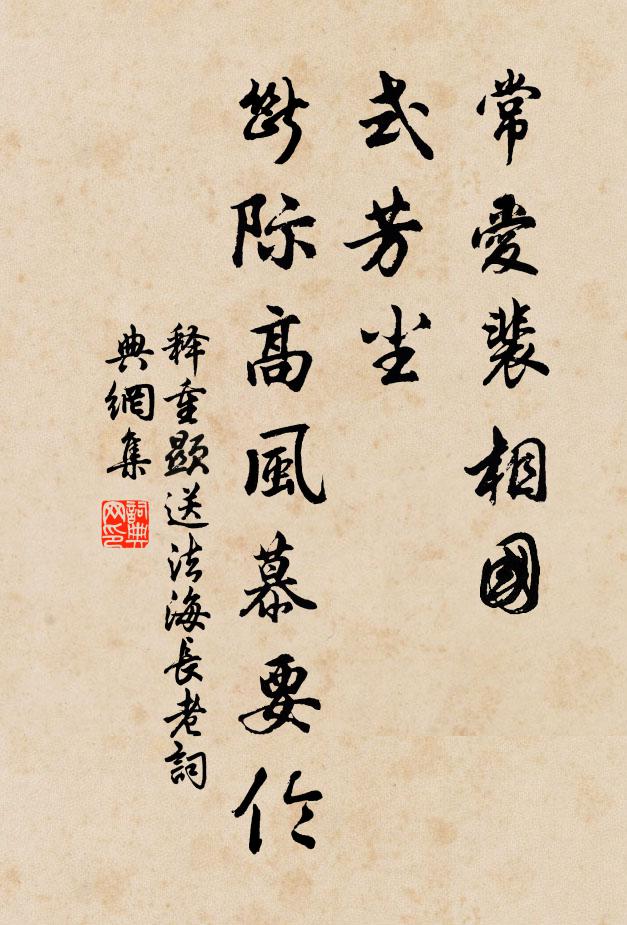 常愛裴相國
式芳尘
断际髙風慕要伦
释重顯送法海長老詞
典網集
詞典
网印